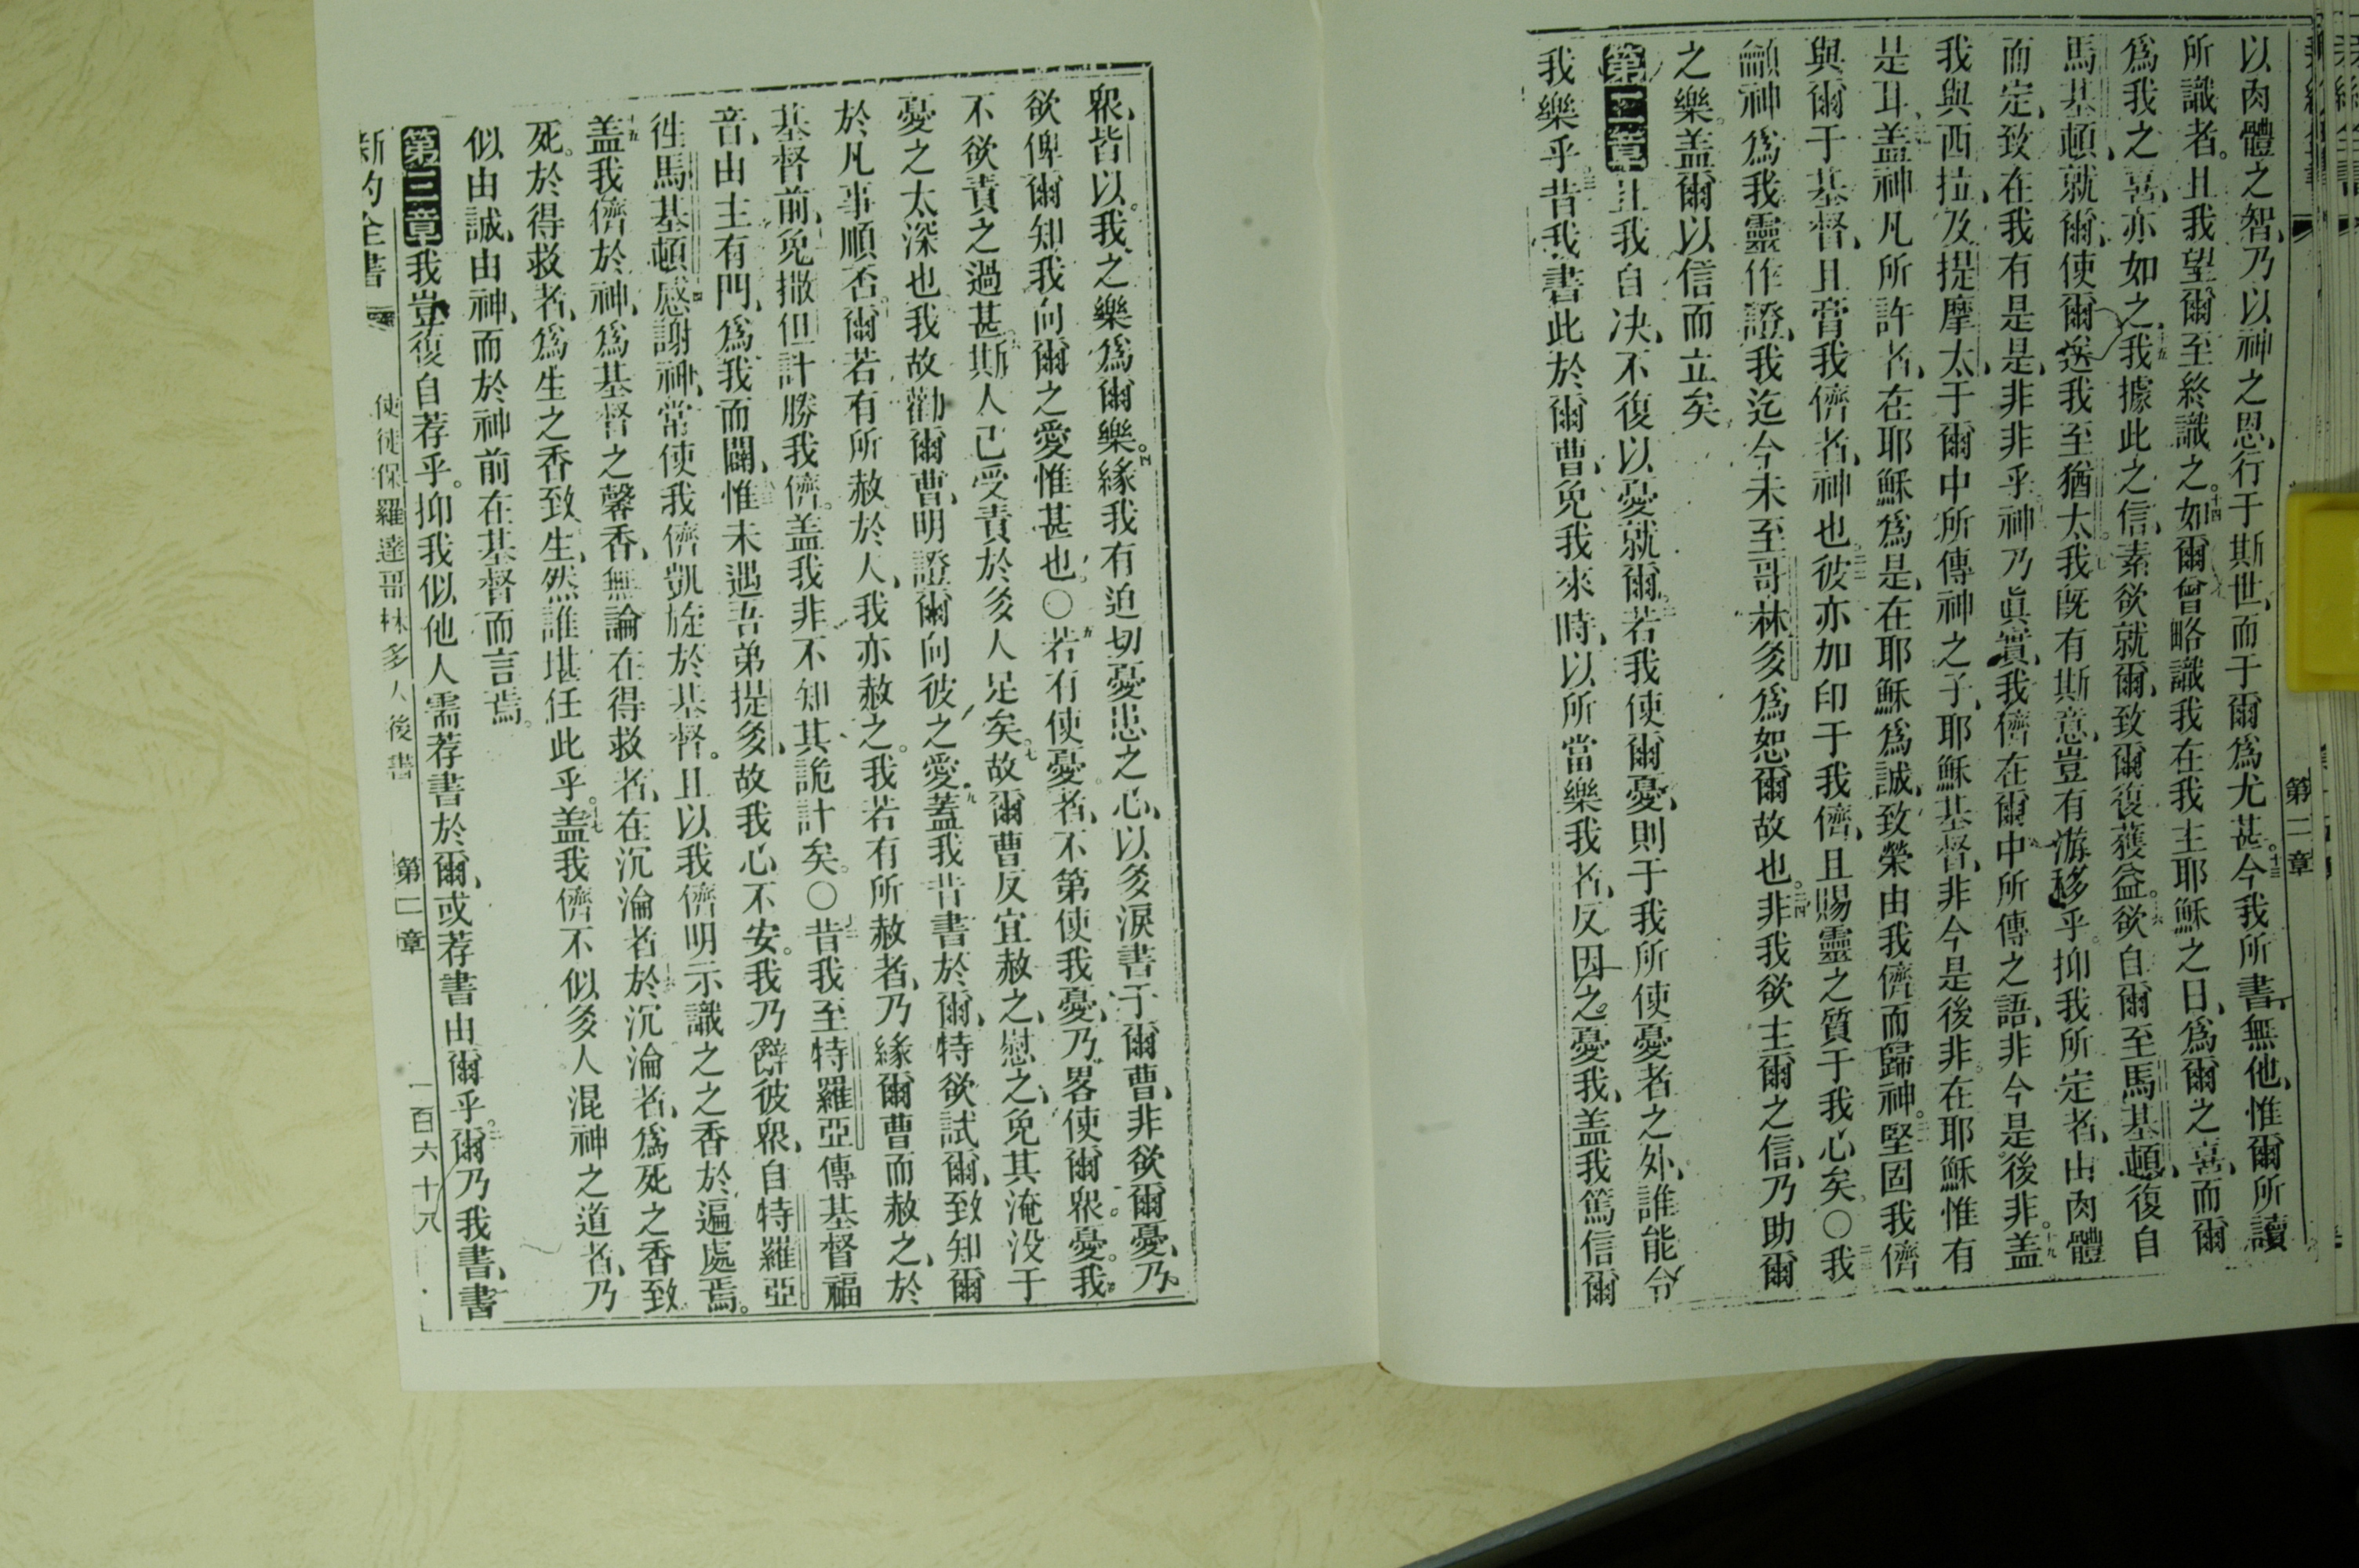 以肉體之智、乃以神之恩、行于斯世、而于爾爲尤甚。十三今我所書、無他、惟爾所讀
所識者。且我望爾至終識之。十四如爾曾略識我在我主耶穌之日、爲爾之喜、而爾
爲我之喜、亦如之、十五我據此之信、素欲就爾、致爾復獲益。十六欲自爾至馬基頓、復自
馬基頓、就爾、使爾送我至猶太。十七我既有斯意、豈有游移乎。抑我所定者、由肉體
而定、致在我有是是、非非乎。神乃眞實、我儕在爾中所傳之語、非今是後非。十九盖
我與西拉、及提摩太、于爾中所傳神之子、耶穌基督、非今是後非。在耶穌惟有
是耳。盖神凡所許者、在耶穌爲是、在耶穌爲誠、致榮由我儕而歸神。堅固我儕
與爾于基督、且膏我儕者、神也。彼亦加印于我儕、且賜靈之質于我心矣。○我
籲神爲我靈作證、我迄今未至哥林多、爲恕爾故也。非我欲主爾之信、乃助爾
之樂。盖爾以信而立矣
第二章且我自决、不復以憂就爾。若我使爾憂、則于我所使憂者之外、誰能令
我樂乎。昔我書此於爾曹、免我來時、以所當樂我者、反因之憂我、盖我篤信爾
第二章
衆皆以我之樂爲爾樂。四緣我有迫切憂患之心、以多淚書于爾曹、非欲爾憂、乃
欲俾爾知我向爾之愛惟甚也。○五若有使憂者、不第使我憂、乃畧使爾衆憂。我
不欲責之過甚。斯人已受責於多人足矣。七故爾曹反宜赦之、慰之、免其淹没于
憂之太深也。我故勸爾曹、明證爾向彼之愛。九蓋我昔書於爾、特欲試爾、致知爾
於凡事順否。爾若有所赦於人、我亦赦之。我若有所赦者、乃緣爾曹而赦之、於
基督前、免撒但計勝我儕。盖我非不知其詭計矣。○昔我至特羅亞傳基督福
音、由主有門、爲我而闢、惟未遇吾弟提多、故我心不安。我乃辭彼衆、自特羅亞
徃馬基頓。感謝神、常使我儕凱旋於基督。且以我儕明示識之之香於遍處焉。
十五盖我儕於神、爲基督之馨香、無論在得救者、在沉淪者、於沉淪者、爲死之香致
死。於得救者、爲生之香致生、然誰堪任此乎。十七盖我儕不似多人混神之道者、乃
似由誠、由神、而於神前在基督而言焉。
第三章我豈復自荐乎。抑我似他人需荐書於爾、或荐書由爾乎。爾乃我書、書
新約全書 使徒保羅達哥林多人後書 第二章 一百六十八